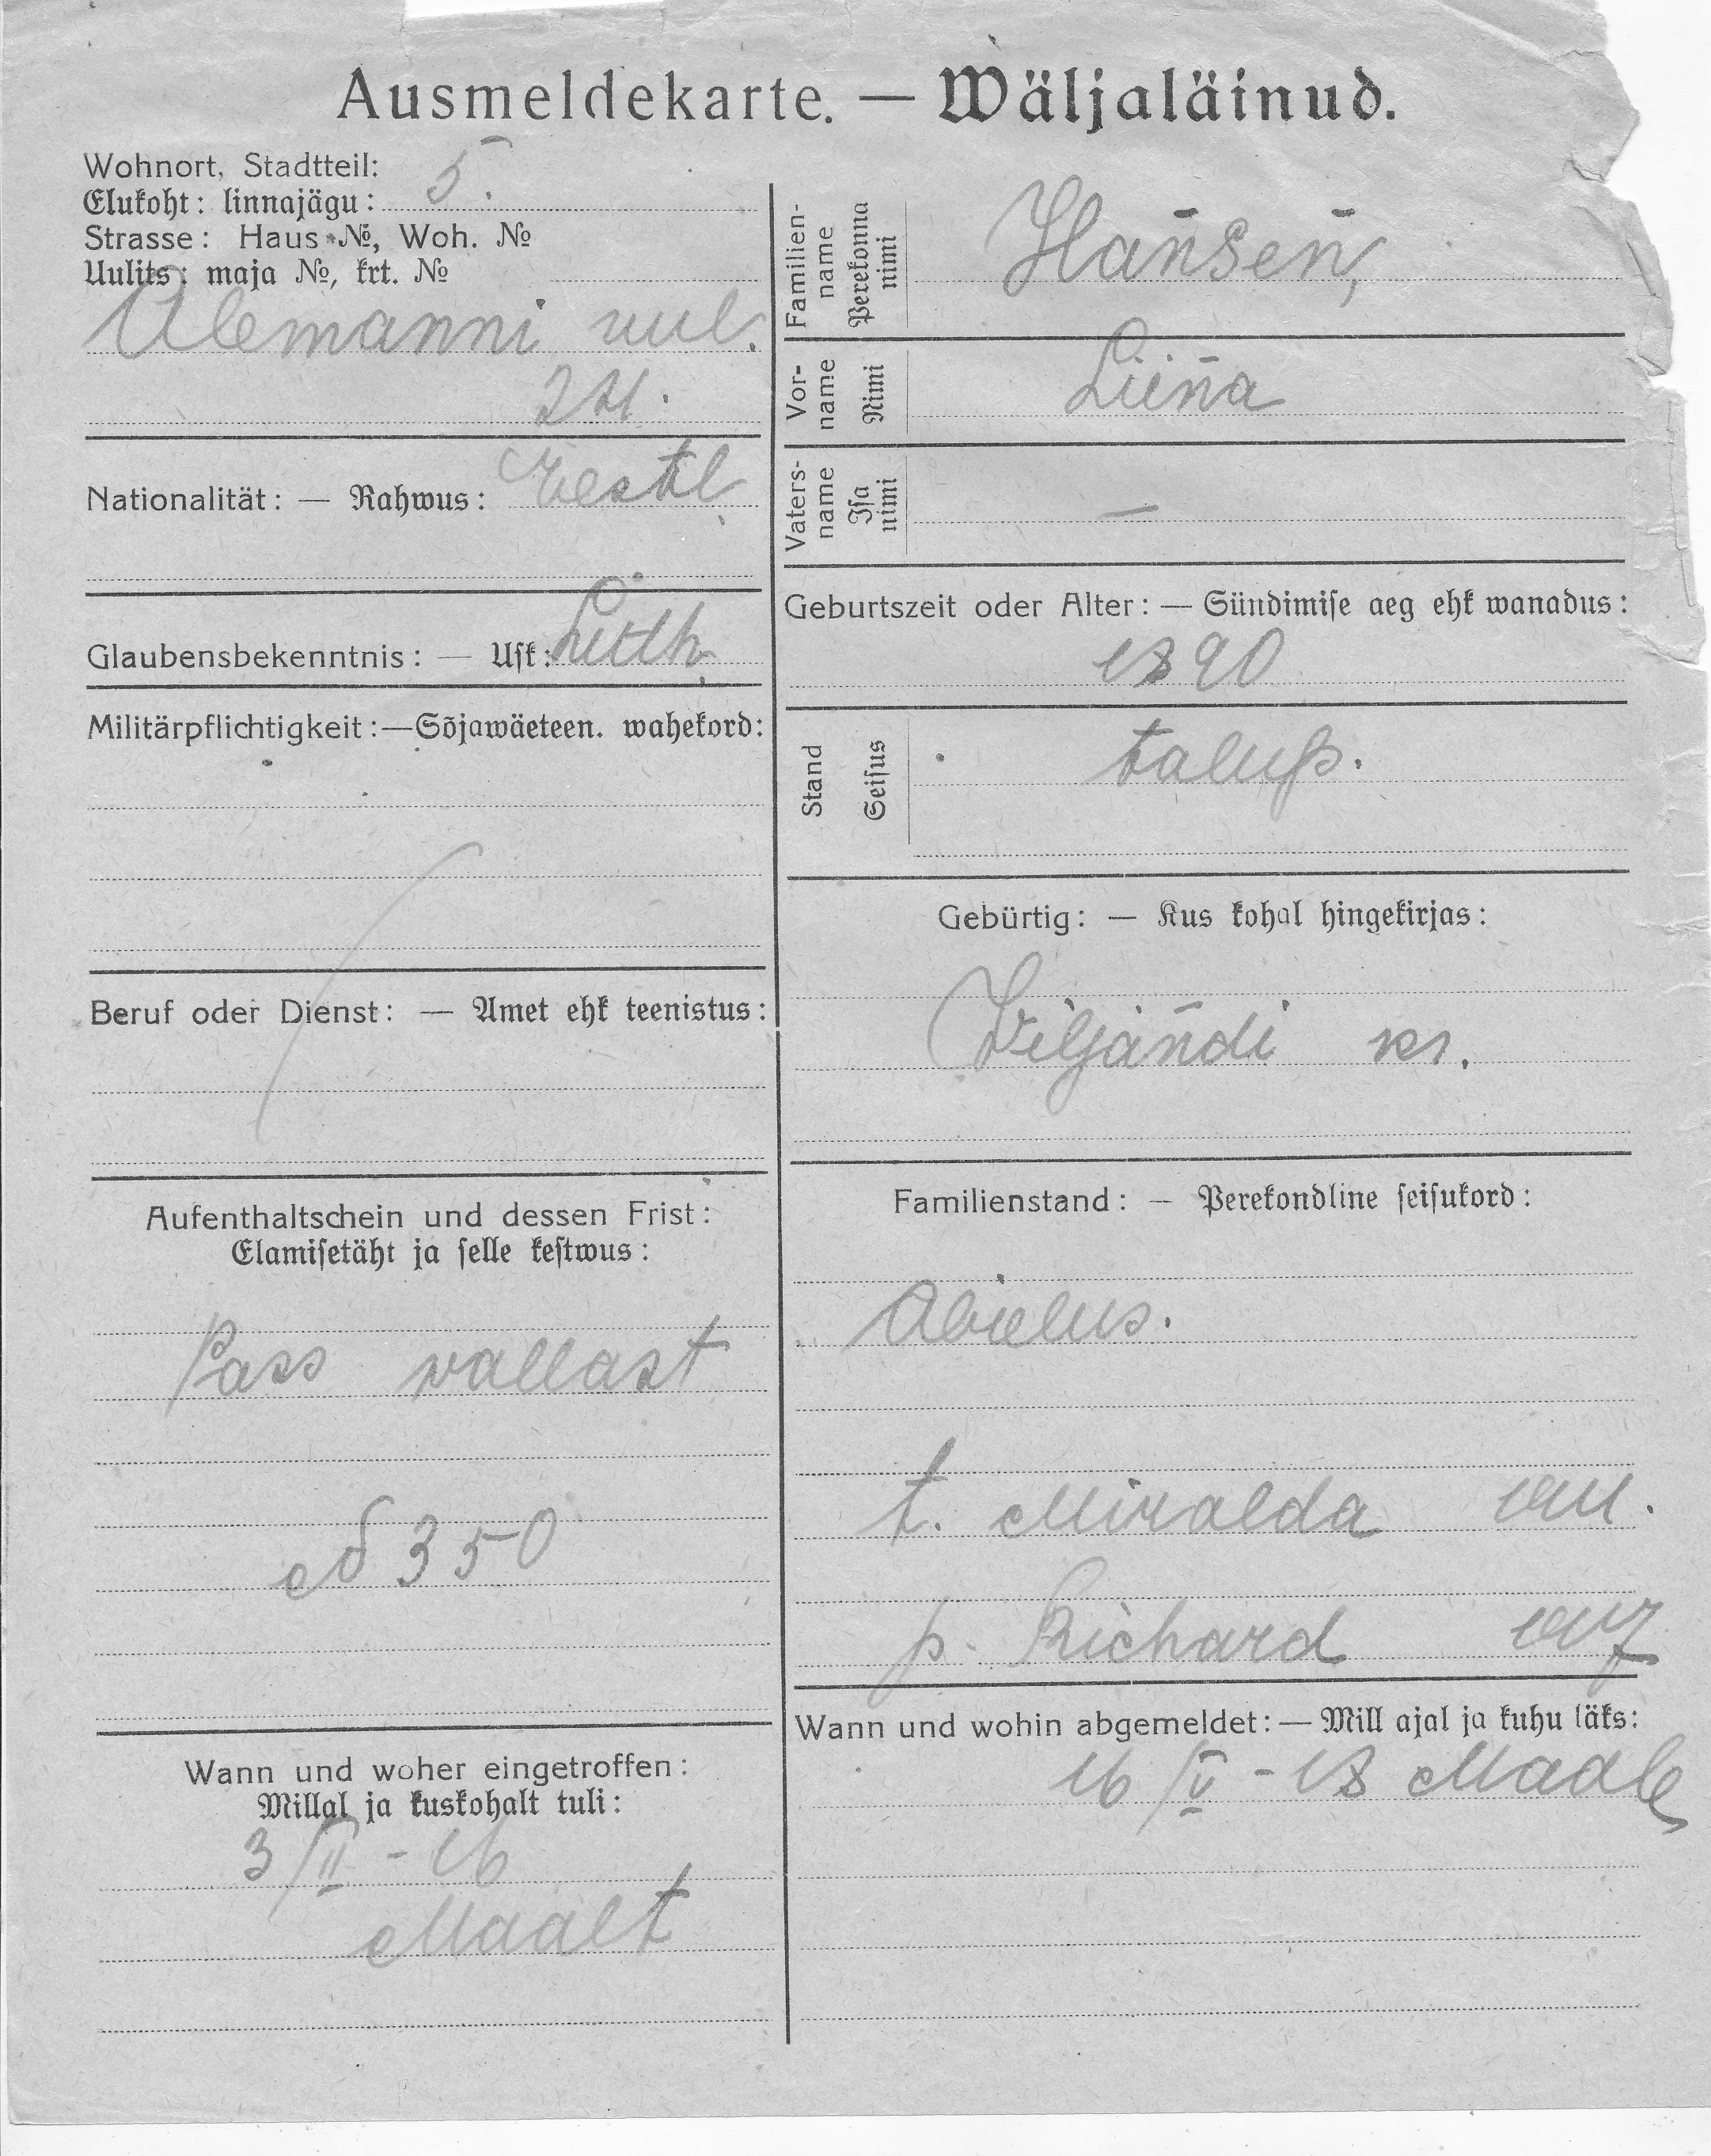 Ausmeldekarte. — Wäljaläinud.
Wohnort, Stadtteil:
Elukoht: linnajägu: 5.
Strasse: Haus №, Woh. №
Uulits: maja №, krt. №
Alemanni uul.
Nationalität: — Rahwus: Eestl.
Glaubensbekenntnis: — Usk: Luth.
Militärpflichtigkeit: — Sõjawäeteen. wahekord:
Beruf oder Dienst: — Amet ehk teenistus:
Aufenthaltschein und dessen Frist:
Elamisetäht ja selle kestwus:
Pass vallast
№ 350
Wann und woher eingetroffen:
Millal ja kuskohalt tuli:
3/II - 16
Maalt
Familien-
name
Perekonna
nimi
Hansen,
Vor-
name
Nimi
Liina
Vaters-
name
Isa
nimi
—
Geburtszeit oder Alter: — Sündimise aeg ehk wanadus:
1890
Stand
Seisus
talup.
Gebürtig: — Kus kohal hingekirjas:
Viljandi kr.
Familienstand: — Perekondline seisukord:
Abielus.
t. Miralda
p. Richard
Wann und wohin abgemeldet: — Mill ajal ja kuhu läks:
16/V - 18 Maale